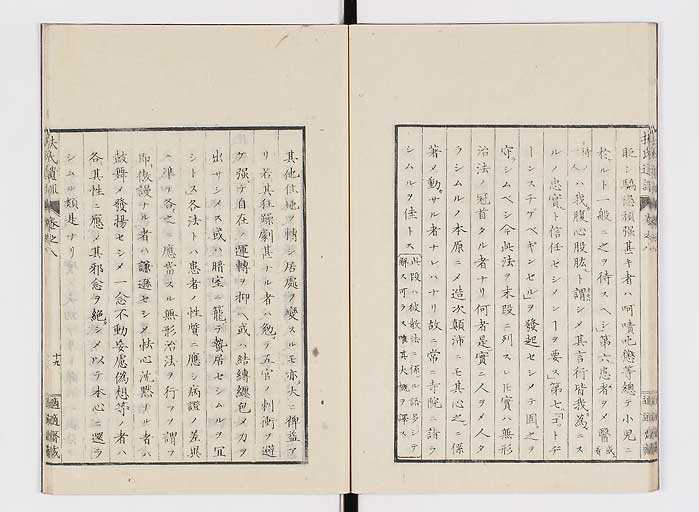 貶シ驕傲頑强甚キ者ハ呵嘖叱懲等總テ小兒ニ
於ルト一般ニ之ヲ待スヘシ第六患者ヲメ醫或看
侍人ハ我腹心股肱ト謂シメ其言行皆我爲ニス
ルノ忠實ト信任セシメンヿヲ要ス第七「ゴットヂ
ーンスチゲペギンセル」ヲ發起セシメテ固之ヲ
守シムベシ今此法ヲ末段ニ列スレ𪜈實ハ無形
治法ノ冠首タル者ナリ何者是實ニ人ヲメ人タ
ラシムルノ本原ニメ造次顛沛ニモ其心之ニ係
著メ動サル者ナレハナリ故ニ常ニ寺院ニ詣ラ
シムルヲ佳トス此段ハ彼敎法ニ係ル語多シテ
解ス可ラス唯其大概ヲ譯ス
其他住地ヲ轉シ居處ヲ變スルモ亦大ニ裨益ア
リ若其狂躁劇甚ナル者ハ勉テ五官ノ刺衝ヲ避
ケ强テ自在ノ運轉ヲ抑ヘ或ハ結縛纏包メ力ヲ
出サシメス或ハ暗室ニ籠テ蟄居セシムルヲ冝
シトス各法トハ患者ノ性質ニ應シ病證ノ差異
ニ準ヲ各之ニ應當スル無形治法ヲ行フヲ謂フ
即傲謾ナル者ハ謙遜セシメ怯心沈默ナル者ハ
鼓舞メ發揚セシメ一念不動妄慮僞想等ノ者ハ
各其性ニ應メ其邪念ヲ絕シメ以テ本心ニ還ラ
シムル類是ナリ
扶氏遺訓 卷之八 十九 適適齋藏